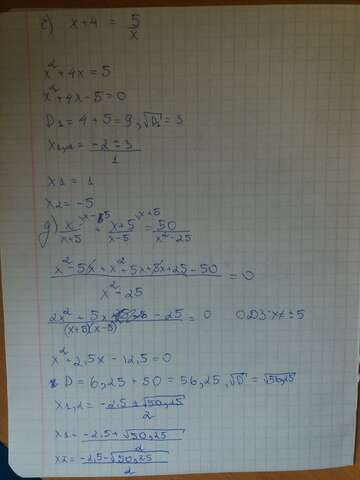 c) x+4 = 5/x
x²+4x=5
x²+4x-5=0
D1=4+5=9, √D1=3
x1,2=(-2±3)/1
x1=1
x2=-5
g) x/(x+5) x-5 + (x+5)/(x-5) x+5 = 50/(x²-25)
(x²-5x+x²+5x+5x+25-50)/(x²-25) = 0
(2x²+5x-25)/((x+5)(x-5)) = 0 ОДЗ: x≠±5
x²+2,5x-12,5=0
D=6,25+50=56,25, √D=√56,25
x1,2=(-2,5±√50,25)/2
x1=(-2,5+√50,25)/2
x2=(-2,5-√50,25)/2